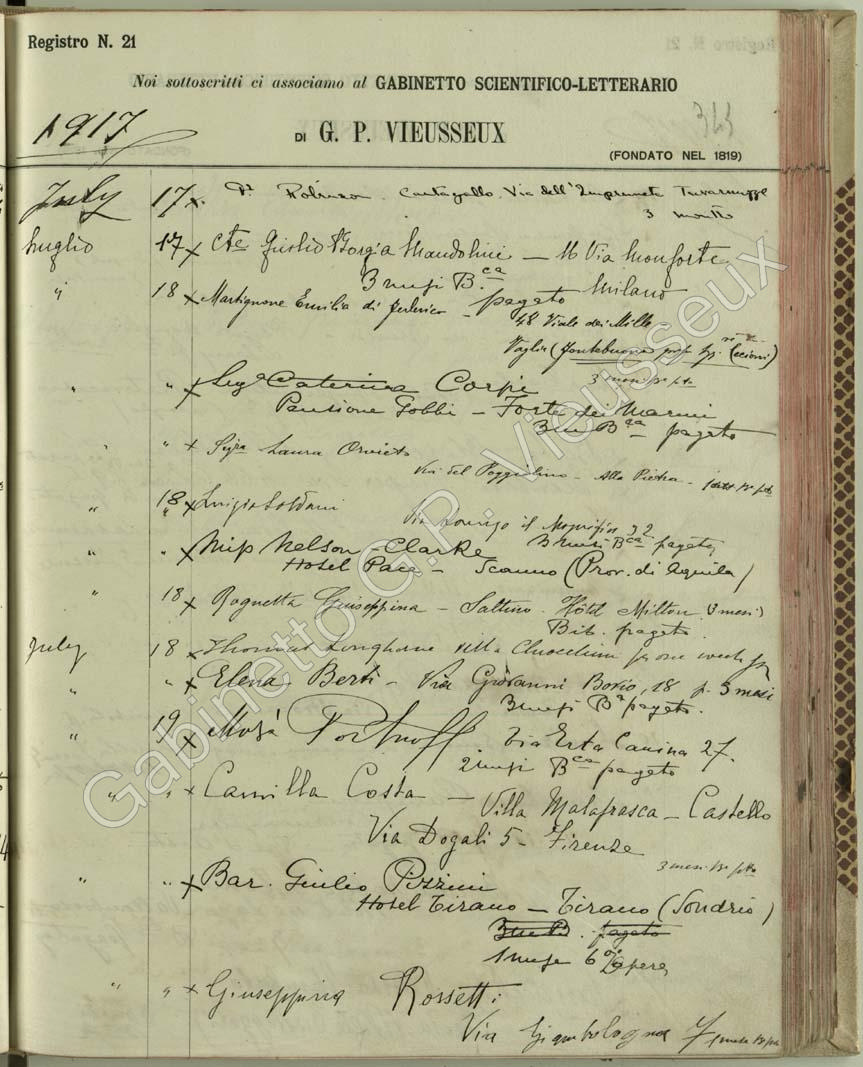 Registro N. 21
Noi sottoscritti ci associamo al GABINETTO SCIENTIFICO-LETTERARIO
1917
DI G. P. VIEUSSEUX
(FONDATO NEL 1819)
July 17 x Robinson. Via dell'Impruneta
3 months
Luglio 17 x Cte Giulio Borgia Mandolini — 16 Via Monforte
3 mesi B.ca Milano
" 18 x Martignone Emilia di Federico - pagato
48 Viale dei Mille
Vaglia (Fontebuona
3 mesi
" " x Sigra Caterina Corpi
Pensione Gobbi — Forte dei Marmi
3 m B.ca pagato
" " x Sigra Laura Orvieto
Via del Poggiolino - Alla Pietra -
" 18 x Luigia Soldani
Via Lorenzo il Magnifico 32
3 mesi B.ca pagato
" " x Miss Nelson-Clarke
Hotel Pace - Scanno (Prov. di Aquila)
" 18 x Rognetta Giuseppina — Saltino. Hôtel Milton (3 mesi)
Bib. pagato
July 18 x Thomas Villa for one week
" " x Elena Berti - Via Giovanni Bovio, 18 p. 3 mesi
3 mesi B.a pagato.
" 19 x Mosè Portnoff Via Erta Canina 27.
2 mesi B.ca pagato
" " x Camilla Costa — Villa Malafrasca - Castello
Via Dogali 5 - Firenze
3 mesi
" " x Bar. Giulio Pizzini
Hotel Tirano — Tirano (Sondrio)
3 m B. pagato
1 mese 6 Opere
" " x Giuseppina Rossetti
Via Giambologna 7 1 mese
Gabinetto G.P. Vieusseux